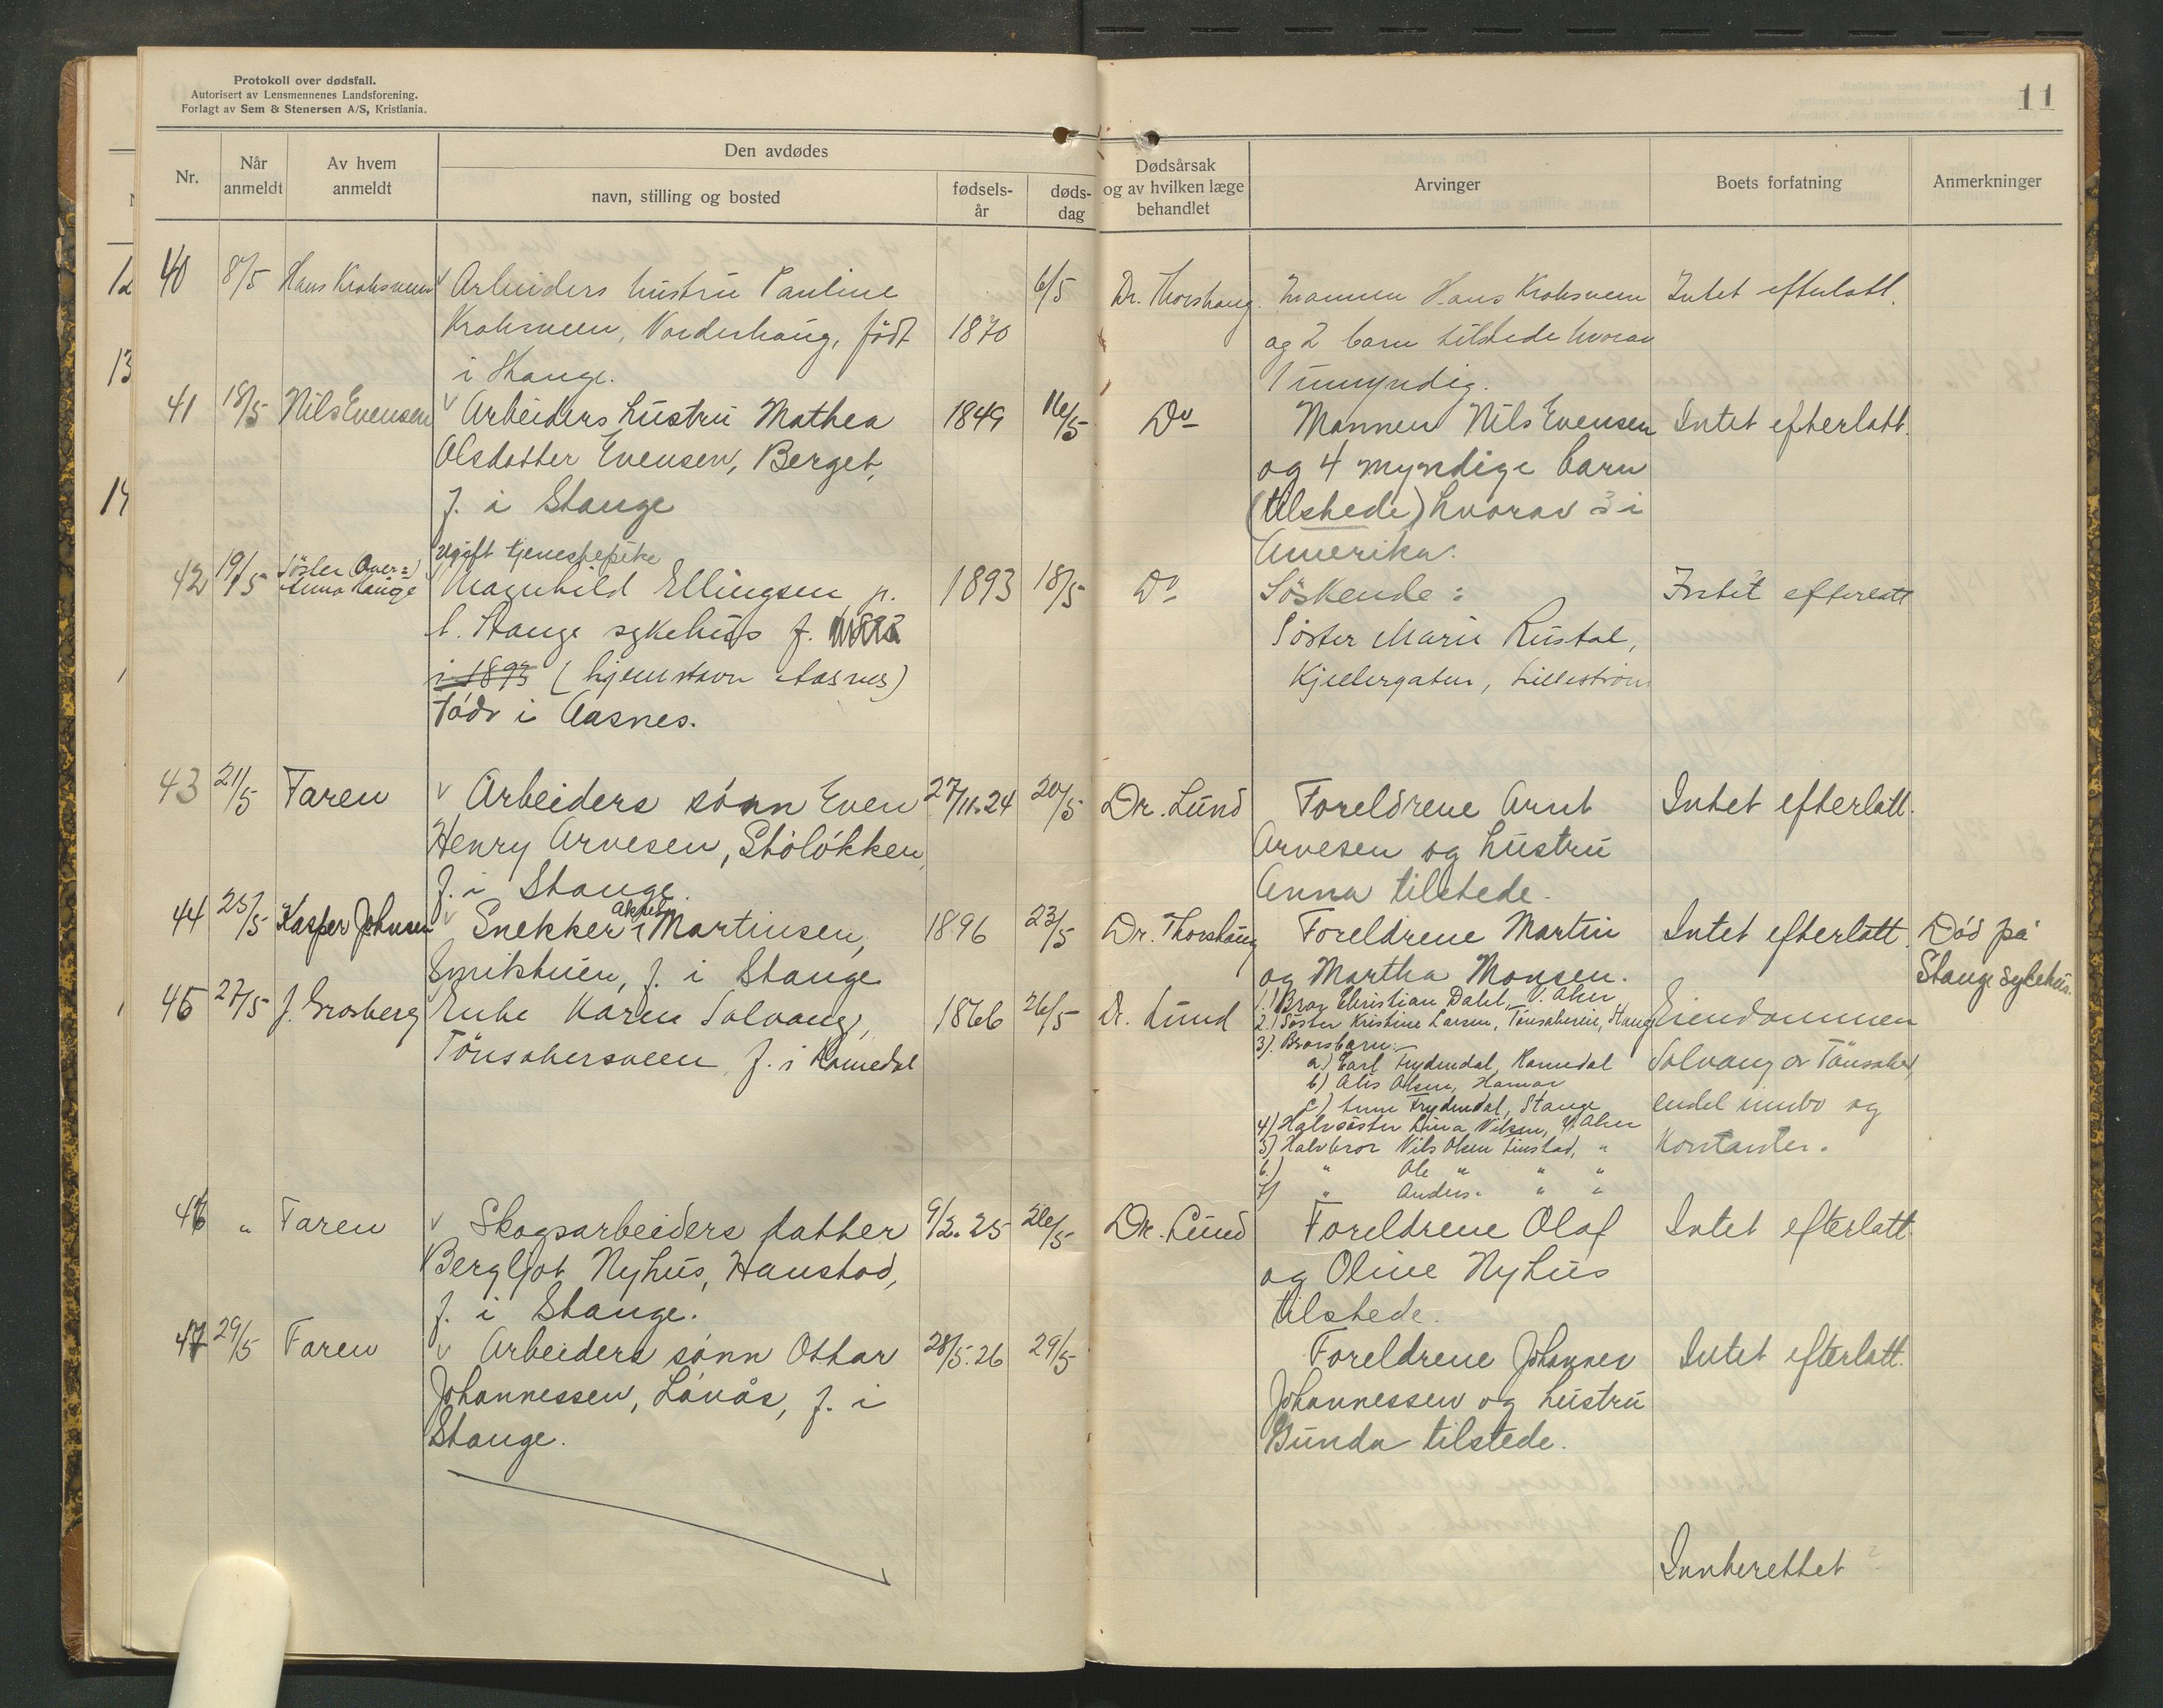 Protokoll over dødsfall.
Autorisert av Lensmennenes Landsforening.
Forlagt av Sem & Stenersen A/S, Kristiania.
11
Nr.
Når anmeldt
Av hvem anmeldt
Den avdødes
navn, stilling og bosted
fødsels-år
døds-dag
Dødsårsak og av hvilken læge behandlet
Arvinger
Boets forfatning
Anmerkninger
12
13
14
40 8/5 Hans Krohsveen Arbeiders hustru Pauline 6/5 Dr. Thorshaug. Mannen Hans Krohsveen Intet efterlatt.
Krohsveen, Norderhaug, født 1870 og 2 barn tilstede hvorav
i Stange. 1 umyndig.
41 18/5 Nils Evensen Arbeiders hustru Mathea 1849 16/5 Do Mannen Nils Evensen Intet efterlatt.
Olsdatter Evensen, Berget, og 4 myndige barn
f. i Stange (tilstede) hvorav 3 i
Amerika.
Ugift tjenestepike
42 19/5 Søster Anna Hauge Magnhild Ellingsen p. 1893 18/5 Do Søskende: Intet efterlatt
t. Stange sykehus f. Søster Marie Rustad,
i 1893 (hjemstavn Aasnes) Kjellergaten, Lillestrøm
Født i Aasnes.
43 21/5 Faren Arbeiders sønn Even 27/11.24 20/5 Dr. Lund Foreldrene Arnt Intet efterlatt.
Henry Arvesen, Stóløkken, Arvesen og hustru
f. i Stange. Anna tilstede.
44 25/5 Kasper Johnsen Snekker Martinsen, 1896 23/5 Dr. Thorshaug Foreldrene Martin Intet efterlatt. Død på
Smiktuen, f. i Stange og Martha Monsen. Stange sykehus.
45 27/5 J. Grosberg Enke Karen Solvang, 1866 26/5 Dr. Lund 1.) Bror Christian Dahl, V. Aker Eiendommen
Tønsakersveen f. i Romedal 2.) Søster Kristine Larsen, Tønsakerei, Stange
3). Brorsbarn:
a) Carl Frydendal, Romedal Solvang av Tønsaker,
b) Alis Olsen, Hamar
c) Frydendal, Stange endel innbo og
4) Halvsøster Lina Nilsen, V. Aker
5) Halvbror Nils Olsen Linstad, " Kontanter.
6.) " Ole " " "
7) " Anders " " "
46 " Faren Skogsarbeiders datter 9/2.25 26/5 Dr. Lund Foreldrene Olaf Intet efterlatt
Bergljot Nyhus, Hanstad, og Oline Nyhus
f. i Stange. tilstede.
47 29/5 Faren Arbeiders sønn Ottar 28/5.26 29/5 Foreldrene Johannes Intet efterlatt.
Johannessen, Løvås, f. i Johannessen og hustru
Stange. Gunda tilstede.
Innberettet